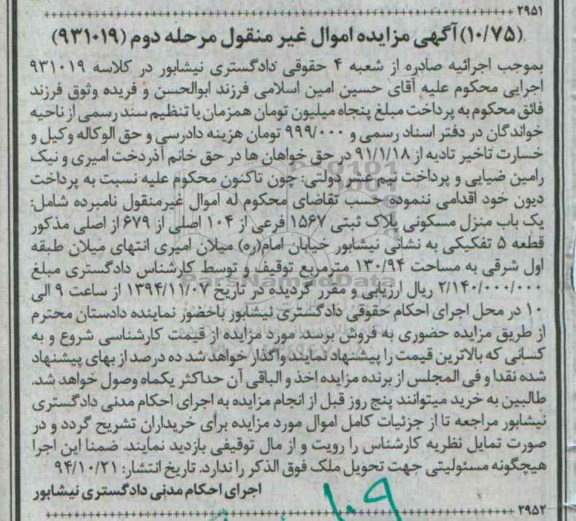 ۲۹۵۱
(۱۰/۷۵) آگهی مزایده اموال غیر منقول مرحله دوم (۹۳۱۰۱۹)
بموجب اجرائیه صادره از شعبه ۴ حقوقی دادگستری نیشابور در کلاسه ۹۳۱۰۱۹
اجرایی محکوم علیه آقای حسین امین اسلامی فرزند ابوالحسن و فریده وثوق فرزند
فائق محکوم به پرداخت مبلغ پنجاه میلیون تومان همزمان با تنظیم سند رسمی از ناحیه
خواندگان در دفتر اسناد رسمی و ۹۹۹/۰۰۰ تومان هزینه دادرسی و حق الوکاله وکیل و
خسارت تاخیر تادیه از ۹۱/۱/۱۸ در حق خواهان ها در حق خانم آذردخت امیری و نیک
رامین ضیایی و پرداخت نیم عشر دولتی: چون تاکنون محکوم علیه نسبت به پرداخت
دیون خود اقدامی ننموده حسب تقاضای محکوم له اموال غیرمنقول نامبرده شامل:
یک باب منزل مسکونی پلاک ثبتی ۱۵۶۷ فرعی از ۱۰۴ اصلی از ۶۷۹ از اصلی مذکور
قطعه ۵ تفکیکی به نشانی نیشابور خیابان امام(ره) میلان امیری انتهای میلان طبقه
اول شرقی به مساحت ۱۳۰/۹۴ مترمربع توقیف و توسط کارشناس دادگستری مبلغ
۲/۱۴۰/۰۰۰/۰۰۰ ریال ارزیابی و مقرر گردیده در تاریخ ۱۳۹۴/۱۱/۰۷ از ساعت ۹ الی
۱۰ در محل اجرای احکام حقوقی دادگستری نیشابور باحضور نماینده دادستان محترم
از طریق مزایده حضوری به فروش برسد مورد مزایده از قیمت کارشناسی شروع و به
کسانی که بالاترین قیمت را پیشنهاد نمایند واگذار خواهد شد ده درصد از بهای پیشنهاد
شده نقدا و فی المجلس از برنده مزایده اخذ و الباقی آن حداکثر یکماه وصول خواهد شد.
طالبین به خرید میتوانند پنج روز قبل از انجام مزایده به اجرای احکام مدنی دادگستری
نیشابور مراجعه تا از جزئیات کامل اموال مورد مزایده برای خریداران تشریح گردد و در
صورت تمایل نظریه کارشناس را رویت و از مال توقیفی بازدید نمایند. ضمنا این اجرا
هیچگونه مسئولیتی جهت تحویل ملک فوق الذکر را ندارد. تاریخ انتشار: ۹۴/۱۰/۲۱
اجرای احکام مدنی دادگستری نیشابور
۲۹۵۲